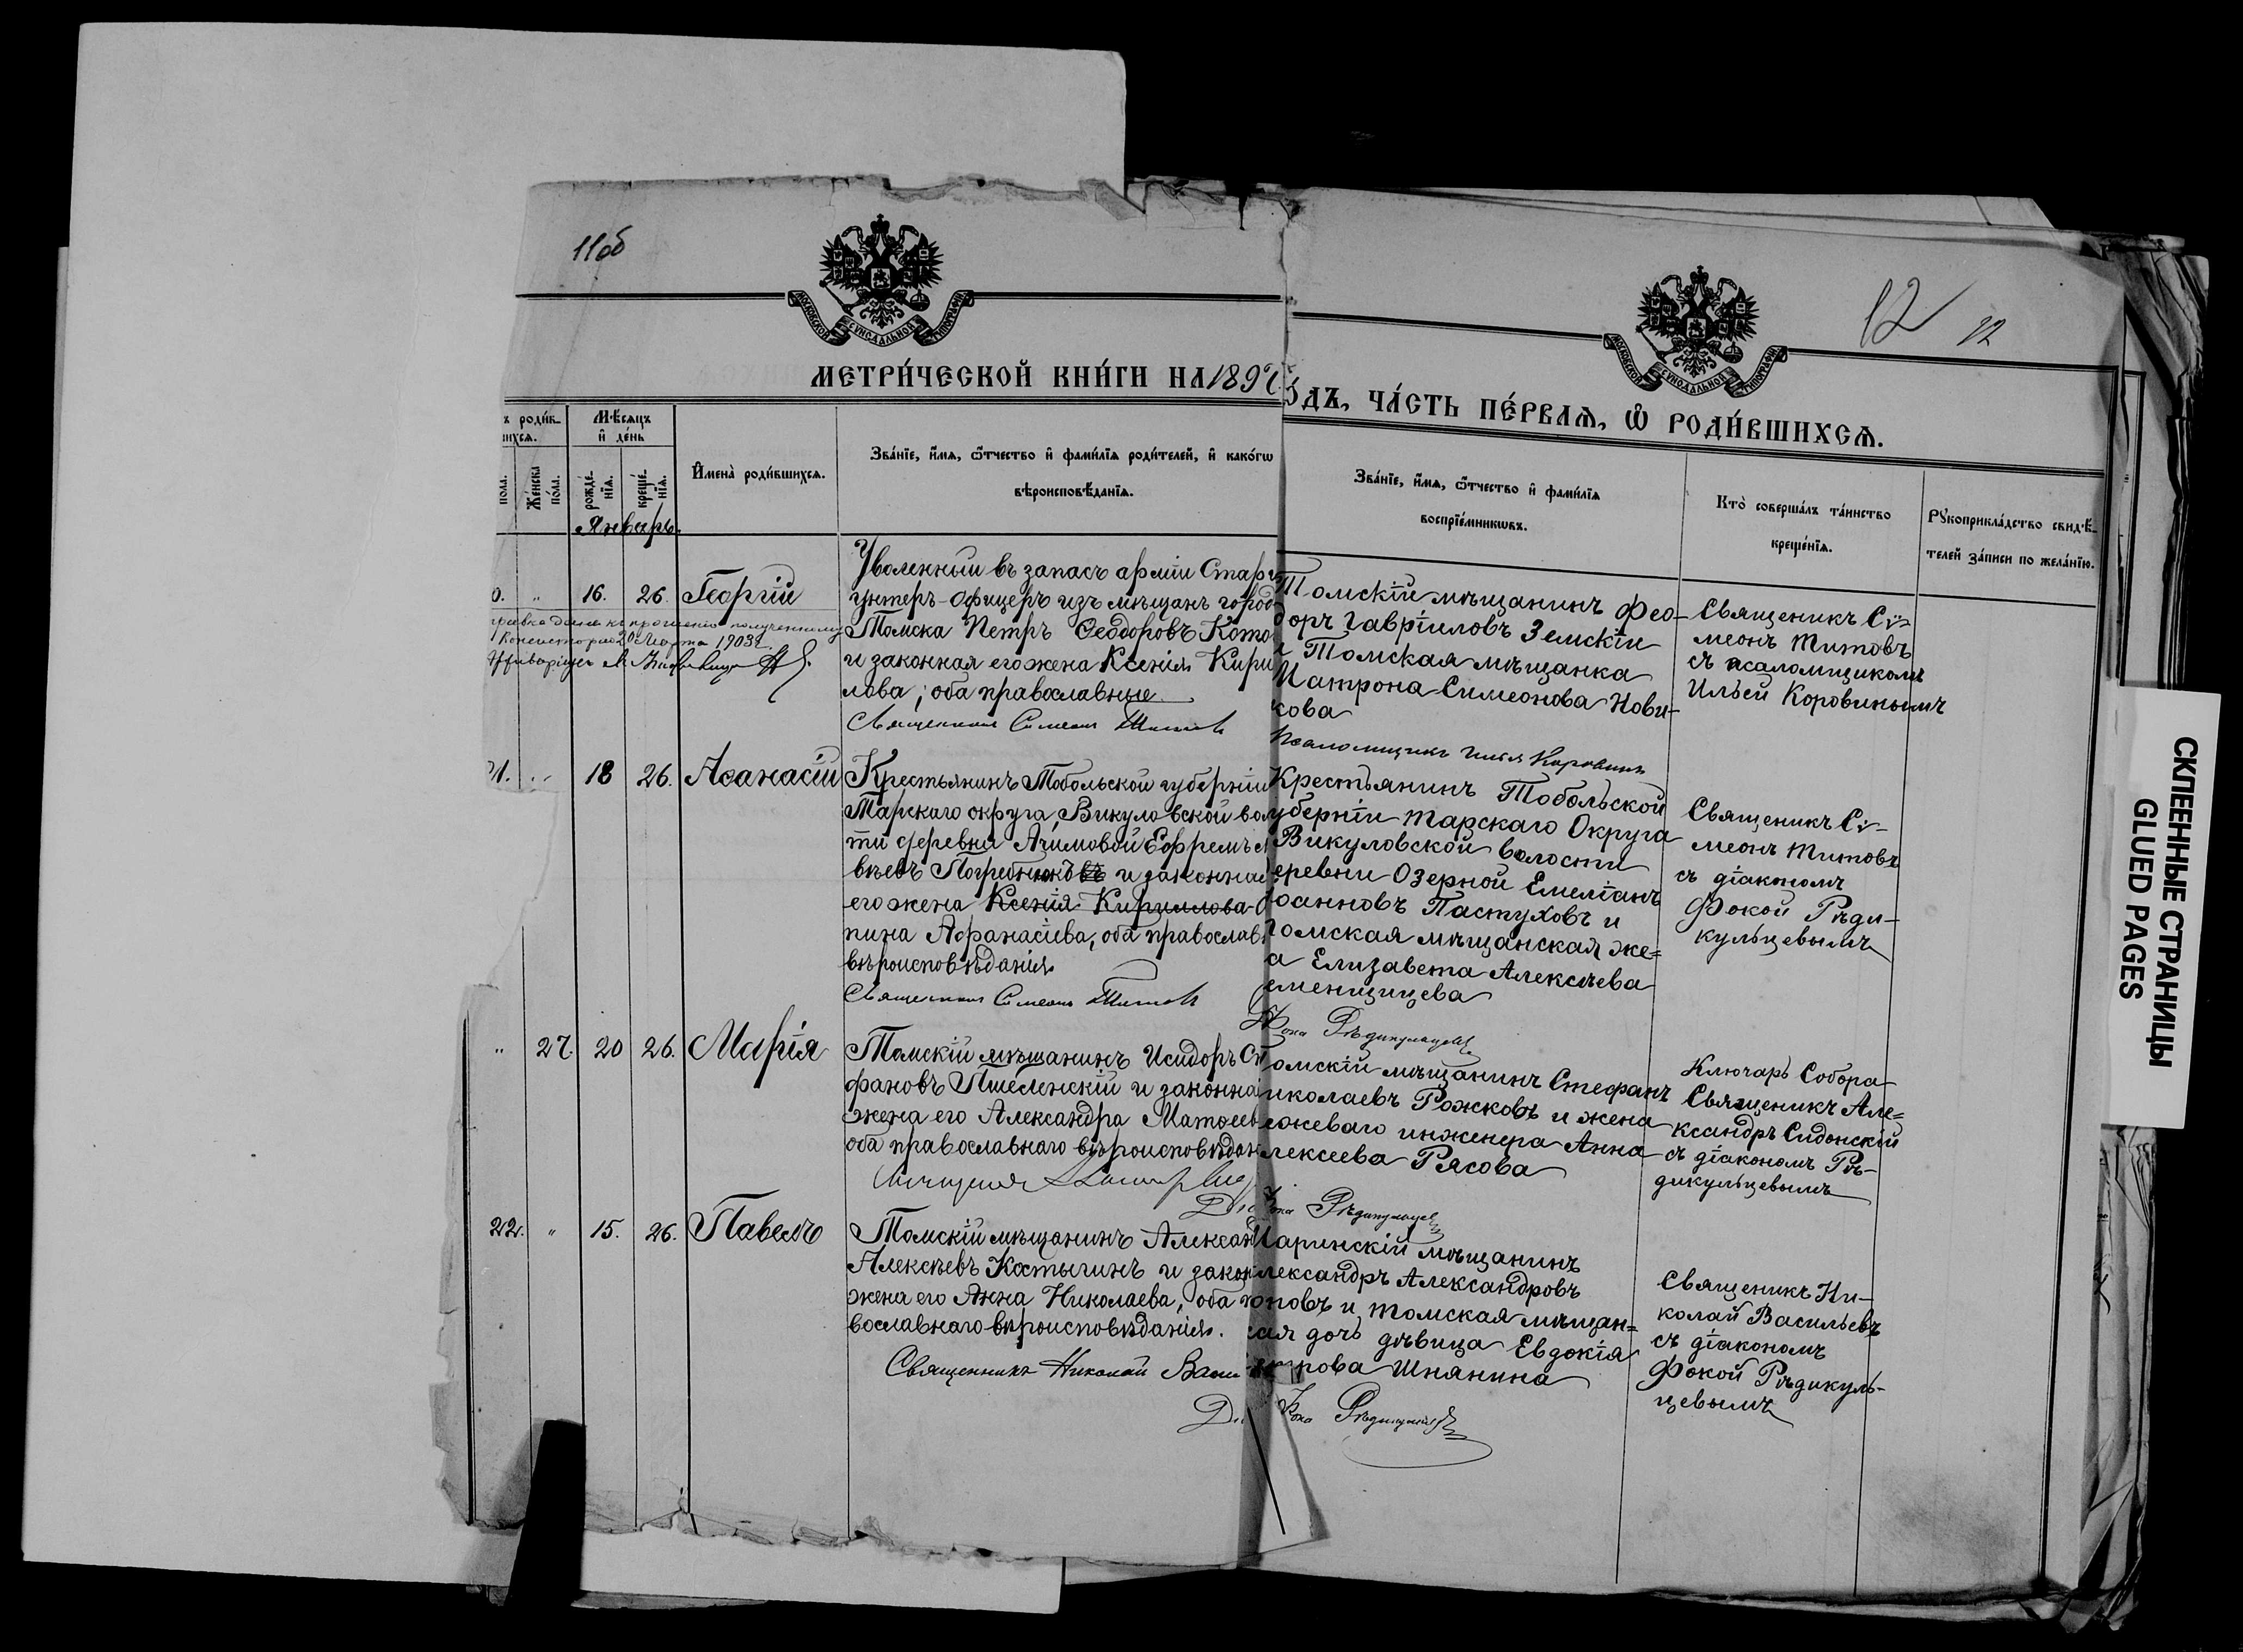 11об
12
12
МОСКОВСКОЙ СѴНОДАЛЬНОЙ ТИПОГРАФІИ
МОСКОВСКОЙ СѴНОДАЛЬНОЙ ТИПОГРАФІИ
МЕТРИ́ЧЕСКОЙ КНИ́ГИ НА 1897
ОДЪ, ЧА́СТЬ ПЕ́РВАѦ, Ѿ РОДИ́ВШИХСѦ.
ъ роди́в-
шихсѧ.
Мѣ́сѧцъ
и҆ де́нь
пола.
Же́нска
по́ла.
рожде-
нїѧ.
креще́-
нїѧ.
И҆мена̀ роди́вшихсѧ.
Зва́нїе, и҆́мѧ, ѻ҆́тчество и҆ фами́лїѧ роди́телей, и҆ како́гѡ
вѣроисповѣ́данїѧ.
Зва́нїе, и҆́мѧ, ѻ҆́тчество и҆ фами́лїѧ
воспрїе́мникѡвъ.
Кто̀ соверша́лъ та́инство
креще́нїѧ.
Рꙋкоприкла́дство свидѣ́-
телей за́писи по жела́нїю.
Январь.
0. " 16. 26. Георгій
Уволенный въ запасъ арміи Старш
унтеръ-офицеръ изъ мѣщанъ город
Томска Петръ Ѳеодоровъ Кото
и законная его жена Ксенія Кири
лова, оба православные
Священникъ Симеонъ Титовъ
дана къ прошенію полученному
20 Марта 1903 г.
Томскій мѣщанинъ Фео-
доръ Гавріиловъ Земскій
и Томская мѣщанка
Матрона Симеонова Нови-
кова
Псаломщикъ Илья Коровинъ
Священикъ Сѵ-
меонъ Титовъ
съ псаломщикомъ
Ильей Коровинымъ
21. " 18 26. Аѳанасій
Крестьянинъ Тобольской губерніи
Тарскаго округа, Викуловской вол
ти деревни Ачимовой Ефремъ
вѣевъ и законная
его жена Ксенія Кириллова
пина Афанасіева, оба православн
вѣроисповѣданія
Священникъ Симеонъ Титовъ
Крестьянинъ Тобольской
уберніи Тарскаго Округа
Викуловской волости
еревни Озерной Емеліанъ
оанновъ Пастуховъ и
Томская мѣщанская же=
а Елизавета Алексѣева
еменищева
Фока Рѣдикульцевъ
Священикъ Сѵ-
меонъ Титовъ
съ діакономъ
Фокой Рѣди-
кульцевымъ
" 27. 20 26. Марія
Томскій мѣщанинъ Исидоръ Ст
фановъ Пшеленскій и законна
жена его Александра Матѳеев
оба православнаго вѣроисповѣдан
омскій мѣщанинъ Стефанъ
иколаевъ Рожковъ и жена
ежеваго инженера Анна
лексеева Рясова
Фока Рѣдикульцевъ
Ключарь Собора
Священикъ Але=
ксандръ Сидонскій
съ діакономъ Рѣ-
дикульцевымъ
22. " 15. 26. Павелъ
Томскій мѣщанинъ Александ
Алексѣевъ Костыгинъ и закон
жена его Анна Николаева, оба
вославнаго вѣроисповѣданія.
Священникъ Николай Васи
Маринскій мѣщанинъ
лександръ Александровъ
оповъ и томская мѣщан=
кая дочь дѣвица Евдокія
трова Шнянина
Фока Рѣдикульцевъ
Священикъ Ни-
колай Васильевъ
съ діакономъ
Фокой Рѣдикуль-
цевымъ
СКЛЕЕННЫЕ СТРАНИЦЫ
GLUED PAGES